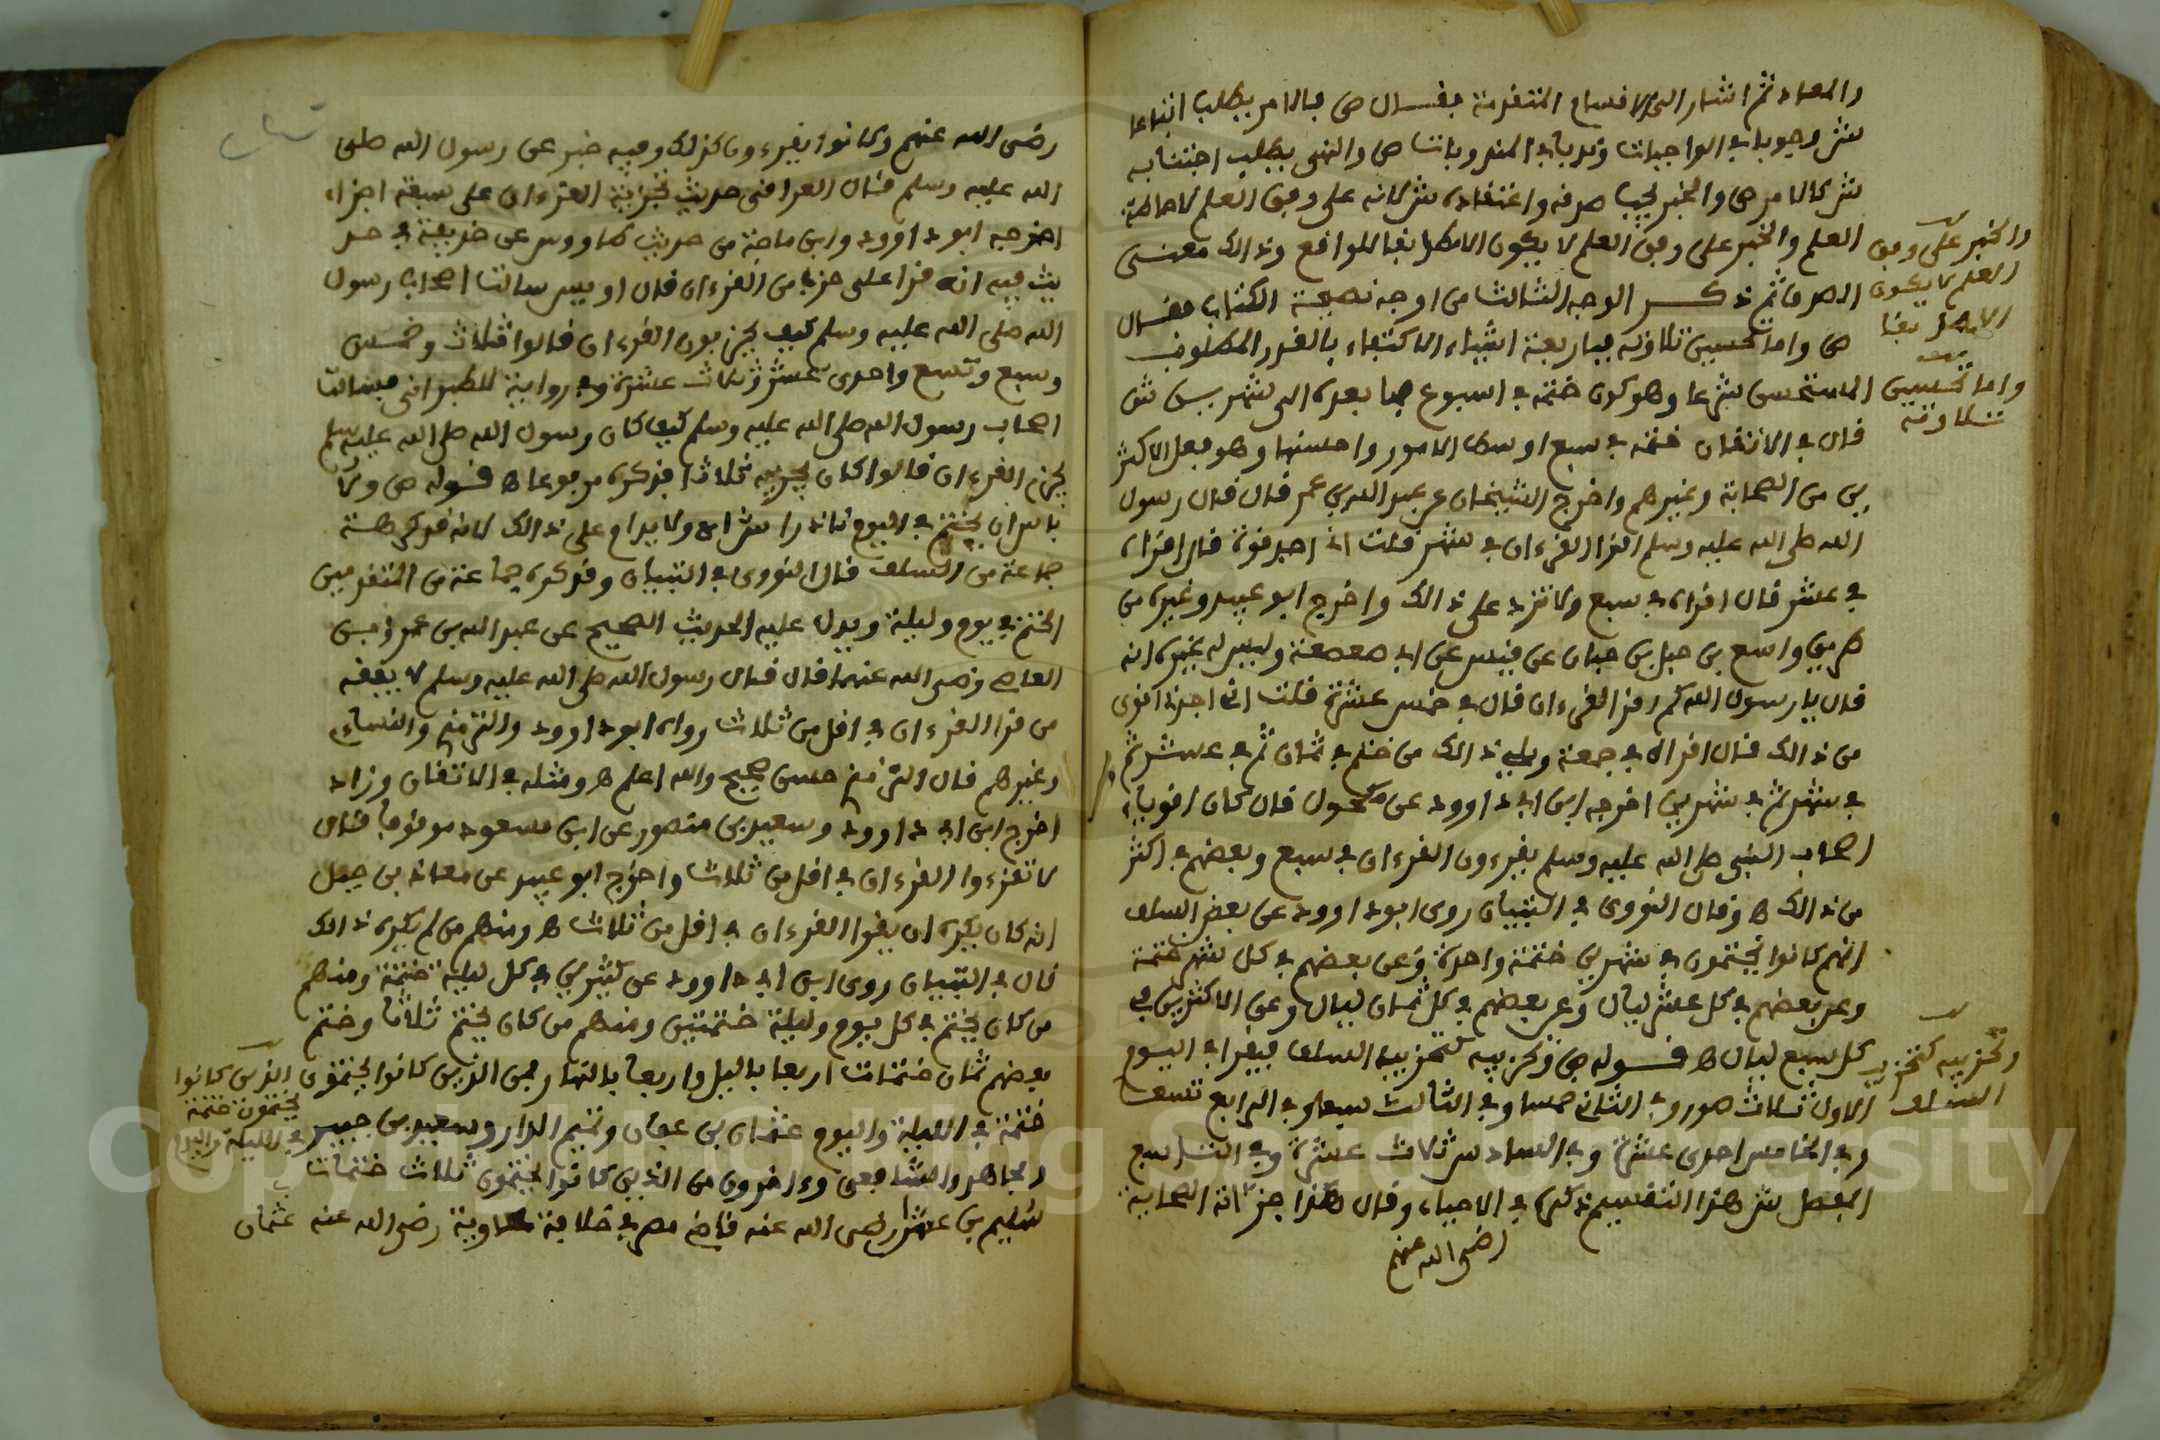 والمعاد ثم اشار الى الاقسام المتقدمة بقوله ص فالامر يطلب اتباعا
ش وجوبا في الواجبات وندبا في المندوبات ص والنهي يطلب اجتنابه
ش كالامر ص والخبر يجب صدقه واعتقاده ش لانه على وفق العلم لاحاطة
العلم والخبر على وفق العلم لا يكون الا مطابقا للواقع وذالك معنى
الصدق ثم ذكر الوجه الثالث من اوجه نصيحة الكتاب فقال
ص واما تحسين تلاوته فباربعة اشياء الاكتفاء بالقدر المطلوب
المستحسن شرعا وهو كون ختمه في اسبوع فما بعده الى شهرين ش
قال في الاتقان ختمه في سبع اوسط الامور واحسنها وهو فعل الاكثر
ين من الصحابة وغيرهم واخرج الشيخان عن عبد الله بن عمر قال قال رسول
الله صلى الله عليه وسلم اقرا القرءان في شهر قلت اني اجد قوة قال اقراه
في عشر قال اقراه في سبع ولا تزد على ذالك واخرج ابو عبيد وغيره من
طريق واسع بن حبان عن قيس عن ابي صعصعة وليس له غيره انه
قال يا رسول الله في كم اقرا القرءان قال في خمس عشرة قلت اني اجدني اقوى
من ذالك قال اقراه في جمعة ويلي ذالك من ختم في ثمان ثم في عشر ثم
في شهر ثم في شهرين اخرجه ابن ابي داوود عن مكحول قال كان اقوياء
اصحاب النبي صلى الله عليه وسلم يقرءون القرءان في سبع وبعضهم في اكثر
من ذالك ه وقال النووي في التبيان روى ابو داوود عن بعض السلف
انهم كانوا يختمون في شهرين ختمة واحدة وعن بعضهم في كل شهر ختمة
وعن بعضهم في كل عشر ليال وعن بعضهم في كل ثمان ليال وعن الاكثرين في
كل سبع ليال ه قوله ص وتحزيبه كتحزيب السلف فيقرا في اليوم
الاول ثلاث سور وفي الثاني خمسا وفي الثالث سبعا وفي الرابع تسعا
وفي الخامس احدى عشرة وفي السادس ثلاث عشرة وفي السابع
المفصل ش هذا التقسيم ذكره في الاحياء وقال هكذا جزاه الصحابة
رضي الله عنهم
والخبر على وفق
العلم لا يكون
الا مطابقا
واما تحسين
تلاوته
وتحزيبه كتحزيب
السلف
رضى الله عنهم وكانوا يقرءون كذلك وفيه خبر عن رسول الله صلى
الله عليه وسلم قال العراقي حديث تجزية القرءان على سبعة اجزاء
اخرجه ابو داوود وابن ماجة من حديث اوس عن حذيفة في حد
يث فيه انه قرا على حزبا من القرءان قال اوس سالت اصحاب رسول
الله صلى الله عليه وسلم كيف يحزبون القرءان قالوا ثلاث وخمس
وسبع وتسع واحدى عشر وثلاث عشرة وفي رواية للطبراني فسالنا
اصحاب رسول الله صلى الله عليه وسلم كيف كان رسول الله صلى الله عليه وسلم
يحزب القرءان قالوا كان يحزبه ثلاثا فذكره مرفوعا ه قوله ص ولا
باس ان يختم في اليوم نادرا ش اي ولا يداوم على ذالك لانه قد كرهه
جماعة من السلف قال النووي في التبيان وقد كره جماعة من المتقدمين
الختم في يوم وليلة ويدل عليه الحديث الصحيح عن عبد الله بن عمرو بن
العاص رضى الله عنهما قال قال رسول الله صلى الله عليه وسلم لا يفقه
من قرا القرءان في اقل من ثلاث رواه ابو داوود والترمذي والنساءي
وغيرهم قال الترمذي حسن صحيح والله اعلم ه ومثله في الاتقان وزاد
اخرج ابن ابي داوود وسعيد بن منصور عن ابن مسعود موقوفا قال
لا تقرءوا القرءان في اقل من ثلاث واخرج ابو عبيد عن معاذ بن جبل
انه كان يكره ان يقرا القرءان في اقل من ثلاث ه ومنهم من لم يكره ذالك
قال في التبيان روى ابن ابي داوود عن كثيرين في كل ليلة ختمة ومنهم
من كان يختم في كل يوم وليلة ختمتين ومنهم من كان يختم ثلاثا وختم
بعضهم ثمان ختمات اربعا بالليل واربعا بالنهار فمن الذين كانوا يختمون
ختمة في الليلة واليوم عثمان بن عفان وتميم الدار وسعيد بن جبير
ومجاهد والشافعي وءاخرون من الذين كانوا يختمون ثلاث ختمات
سليم بن عتر رضى الله عنه قاضي مصر في خلافة معاوية رضى الله عنه عثمان
الذين كانوا
يختمون ختمة
في الليلة واليوم
Copyright © King Saud University